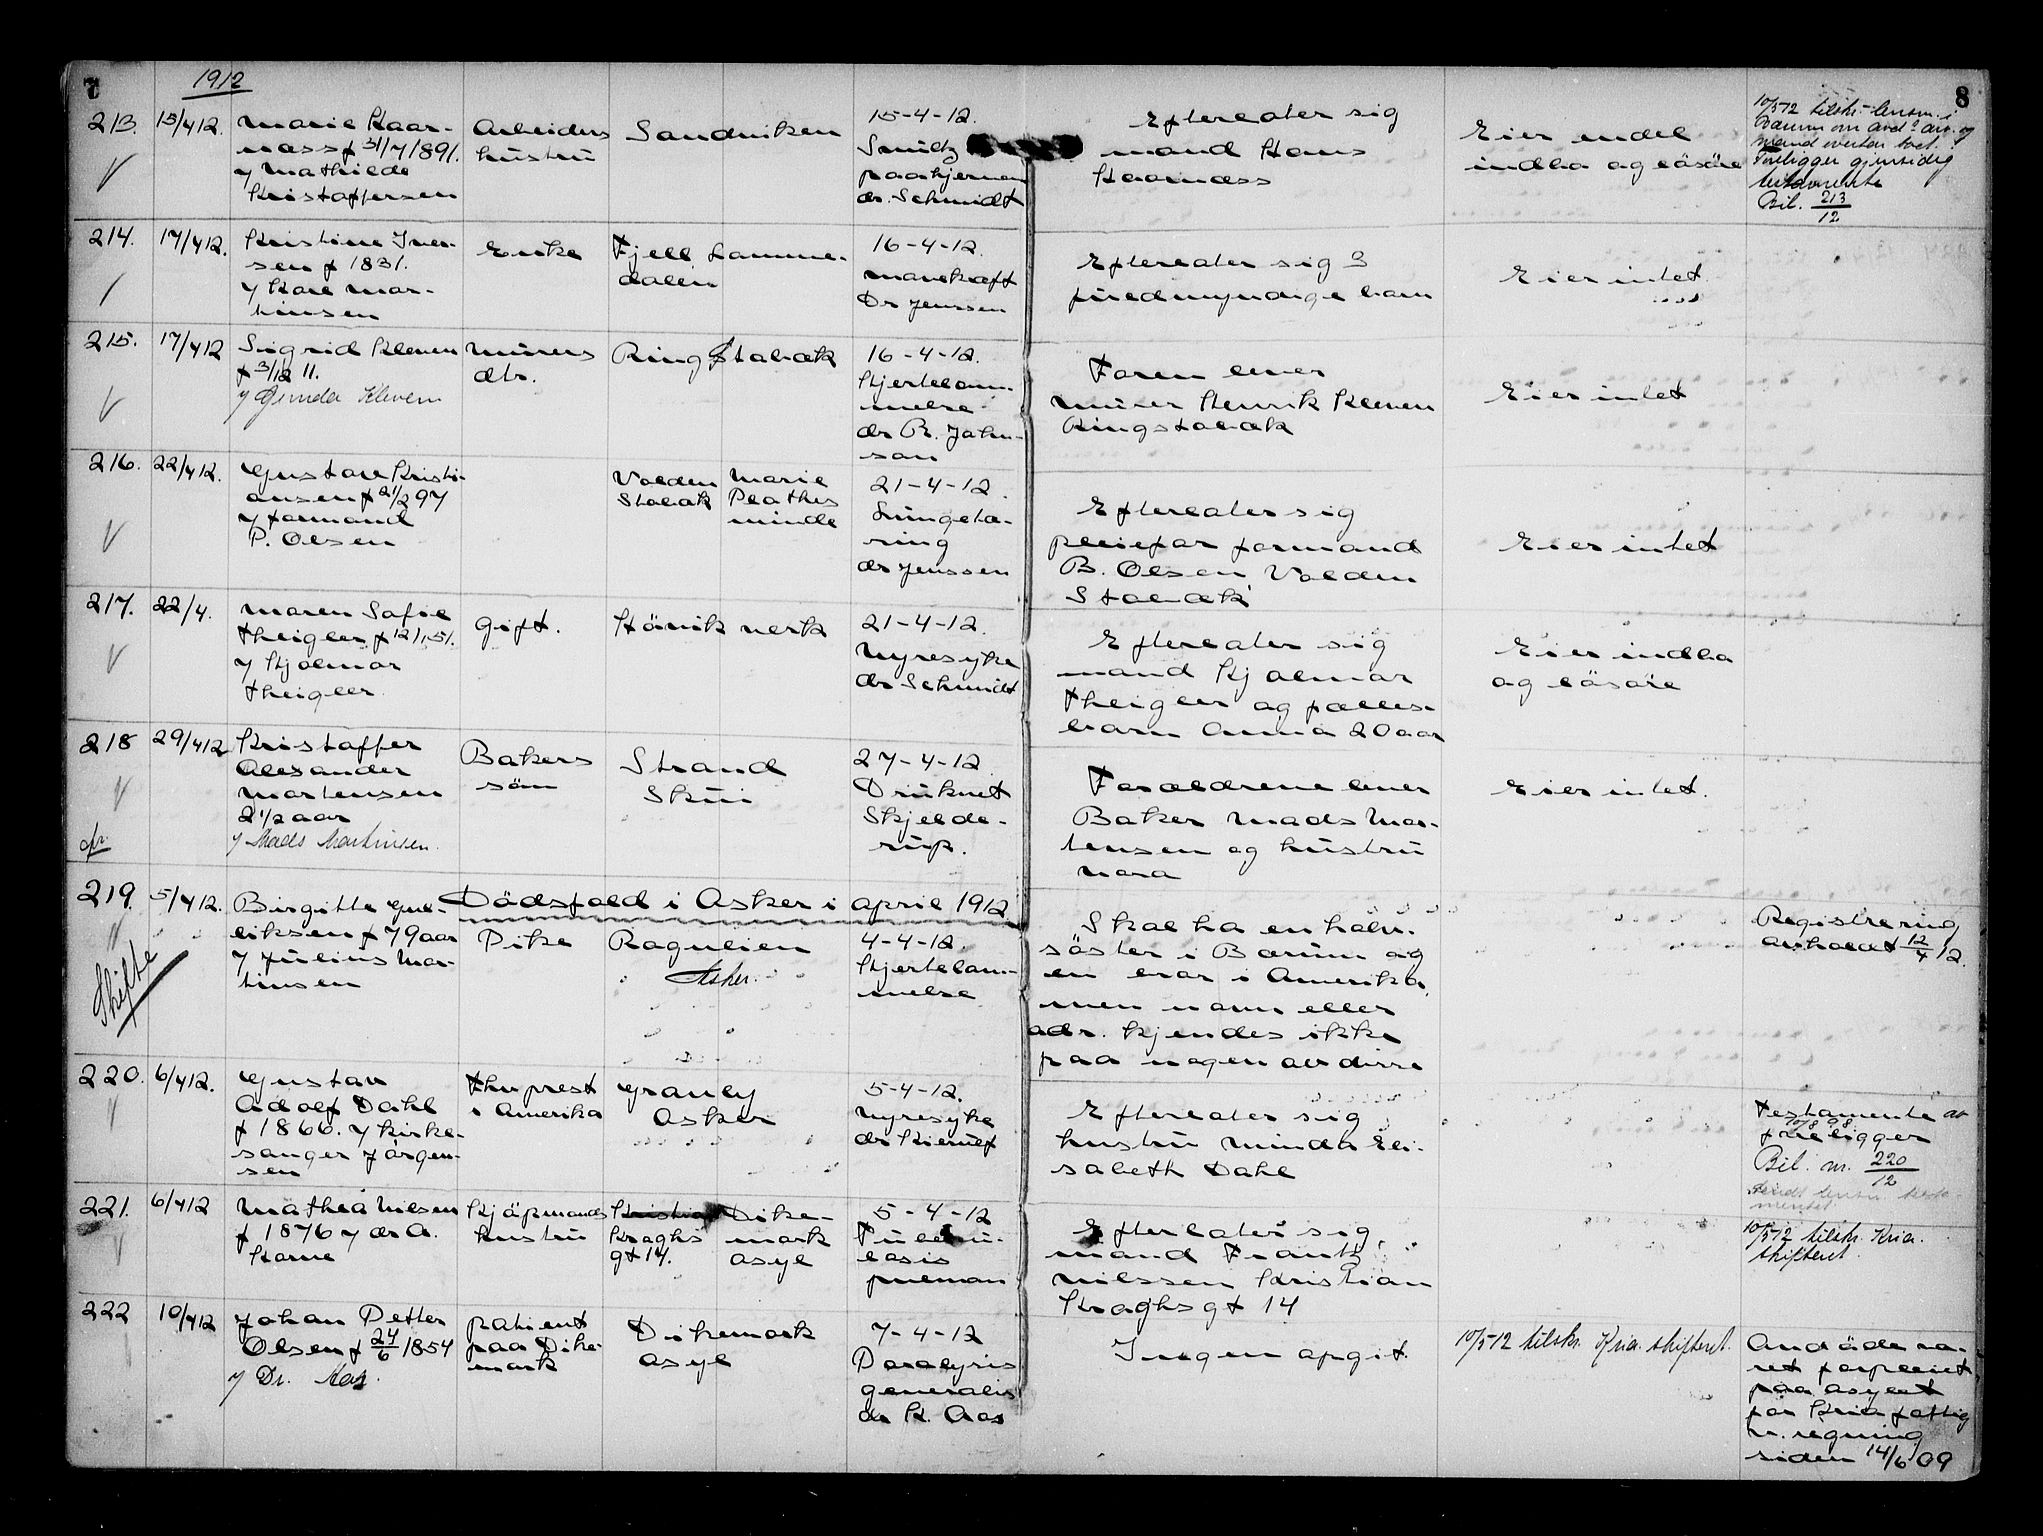 7
8
1912
213. 15/4 12.
Marie Haar-
næss f 31/7 1891.
v/ Mathilde
Kristoffersen
Arbeiders
hustru
Sandviken
15-4-12.
Smitz
paa hjernen
dr. Schmidt
Efterlater sig
mand Hans
Haarnæss
Eier endel
indbo og løsøre
10/5 12 tilskr. lensm. i
Bærum om avd.s arv. og
mand overtar boet.
Foreligger gjensidig
testamente
Bil. 213/12
214. 17/4 12.
Kristine Iver-
sen f 1831.
v/ Karl Mar-
tinsen
Enke
Fjell Lomme-
dalen
16-4-12.
Mavekræft
Dr Jenssen
Efterlater sig 3
fuldmyndige barn
Eier intet
215. 17/4 12
Sigrid Kleven
f 3/12 11.
v/ Gunda Kleven
Murers
dtr.
Ring Stabæk
16-4-12.
Hjertelam-
melse
dr R. John-
son
Faren lever
murer Henrik Kleven
Ringstabæk
Eier intet
216. 22/4 12.
Gustav Kristi-
ansen f 21/2 97
v/ formand
P. Olsen
Volden
Stabæk
Marie
Plathes
minde
21-4-12.
Lungetæ-
ring
dr Jenssen
Efterlater sig
pleiefar formand
B. Olsen, Volden
Stabæk
Eier intet
217. 22/4.
Maren Sofie
Theigler f 12/1 51.
v/ Hjalmar
Theigler
Gift.
Høvik verk
21-4-12.
Nyresyke
dr Schmidt
Efterlater sig
mand Hjalmar
Theigler og fælles-
barn Anna 20 aar
Eier indbo
og løsøre
218 29/4 12
Kristoffer
Alexander
Martensen
2 1/2 aar
v/ Mads Martinsen.
Bakers
søn
Strand
Skui
27-4-12
Druknet
Skjelde-
rup.
Forældrene lever
Baker Mads Mar-
tensen og hustru
Nora
Eier intet.
Dødsfald i Asker i april 1912
219. 5/4 12.
Skifte
Birgitte Gul-
liksen f 79 aar
v/ Julius Mar-
tinsen
Pike
Rognlien
Asker.
4-4-12.
Hjertelam-
melse
Skal ha en halv-
søster i Bærum og
en bror i Amerika,
men navn eller
adr. kjendes ikke
paa nogen av disse
Registrering
avholdt 12/4 12.
220. 6/4 12.
Gustav
Adolf Dahl
f 1866. v/ kirke-
sanger Jørgen-
sen
Fhv prest
i Amerika
Granly
Asker
5-4-12.
Nyresyke
dr Kierulf
Efterlater sig
hustru Minda Eli-
sabeth Dahl
Testamente av
10/8 98
foreligger
Bil. nr. 220/12
221. 6/4 12
Mathea Nilsen
f 1876 v/ dr A.
Horne
Kjøpmands
hustru
Kraghs
gt 14.
Dike-
mark
asyl
5-4-12
Tuberku-
losis
pulmon
Efterlater sig
mand Frantz
Nilssen Kristian
Kraghs gt 14
10/5 12 tilskr. Kria.
skifteret
222 10/4 12
Johan Petter
Olsen f 24/6 1854
v/ Dr. Aas.
Patient
paa Dike-
mark
Dikemark
asyl
7-4-12
Paralysis
generalis
dr K. Aas
Ingen opgit.
10/5 12 tilskr. Kria. skifteret.
Avdøde væ-
ret forpleiet
paa asylet
for Kria fattig
v. regning
siden 14/6 09